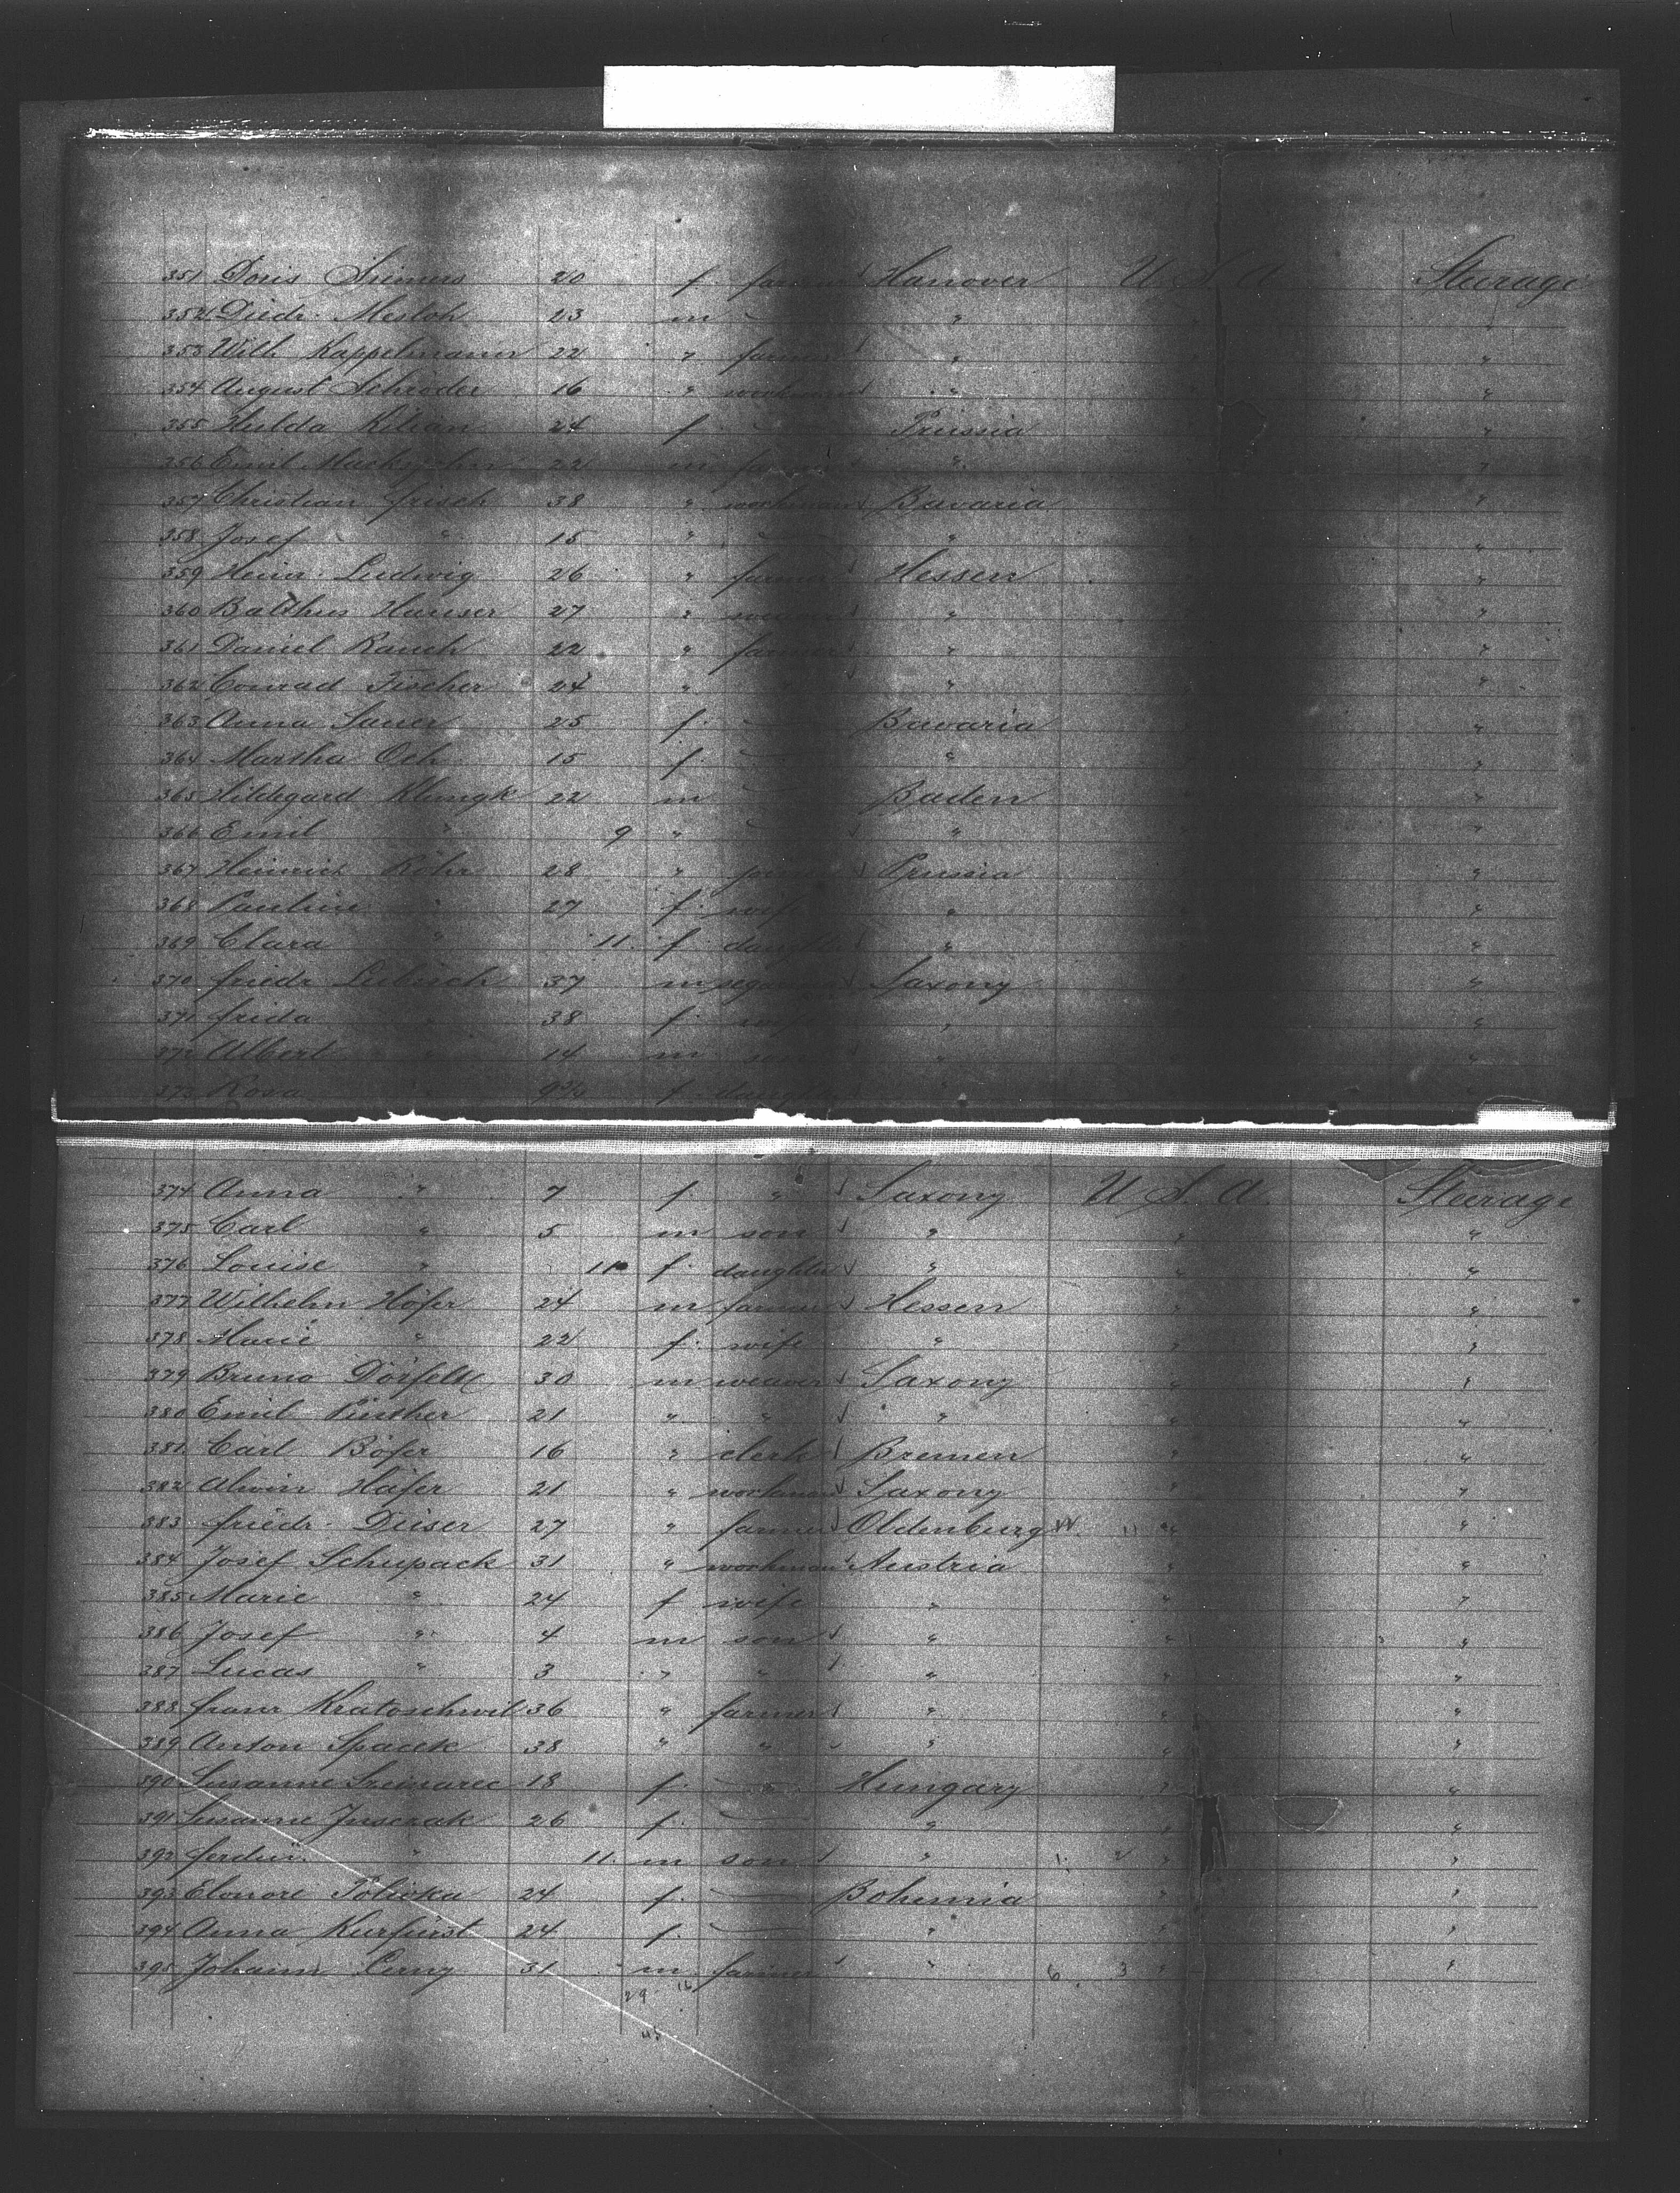 351 Doris Siemers 20 f. farmer Hanover U. S. A. Steerage
352 Diedr. Mesloh 23 m — " " "
353 Wilh Kappelmann 22 " farmer " " "
354 August Schröder 16 " workman " " "
355 Hulda Kilian 24 f — Prussia "
356 Emil 22 m farmer " "
357 Christian Frisch 38 " workman Bavaria "
358 Josef " 15 " — " "
359 Heinr. Ludwig 26 " farmer Hessen "
360 Balthus Hauser 27 " " "
361 Daniel Rauch 22 " farmer " "
362 Conrad Fischer 24 " " " "
363 Anna Sauer 25 f. — Bavaria "
364 Martha Och 15 f. — " "
365 Hildegard Klungk 22 m — Baden "
366 Emil " 9 " — " "
367 Heinrich Röhr 28 " Prussia "
368 Pauline " 27 f. wife " "
369 Clara " 11. f. daughter " "
370 Friedr 37 m Saxony "
371 Frida " 38 f. wife " "
372 Albert " 14 m son " "
373 Rosa f daughter "
374 Anna " 7 f. " Saxony U. S. A. Steerage
375 Carl " 5 m son " " "
376 Louise " 11 f. daughter " " "
377 Wilhelm Höfer 24 m farmer Hessen " "
378 Marie " 22 f. wife " " "
379 Bruno Dörfeldt 30 m weaver Saxony " "
380 Emil Pinther 21 " " " " "
381 Carl Böfer 16 " clerk Bremen " "
382 Alwin Häfer 21 " workman Saxony " "
383 Friedr. Deiser 27 " farmer Oldenburg " "
384 Josef Schupack 31 " workman Austria " "
385 Marie " 24 f wife " " "
386 Josef " 4 m son " " "
387 Lucas " 3 " " " " "
388 Franz Kratoschwil 36 " farmer " " "
389 Anton Spacek 38 " " " " "
390 Susanne 18 f. — Hungary " "
391 Susanne Jusczak 26 f. — " " "
392 Ferdin. " 11. m son " " "
393 Elonore Polivka 24 f. — Bohemia " "
394 Anna Kurfürst 24 f. — " " "
395 Johann Cerny 31 m farmer " 6 3 " "
29 16
45